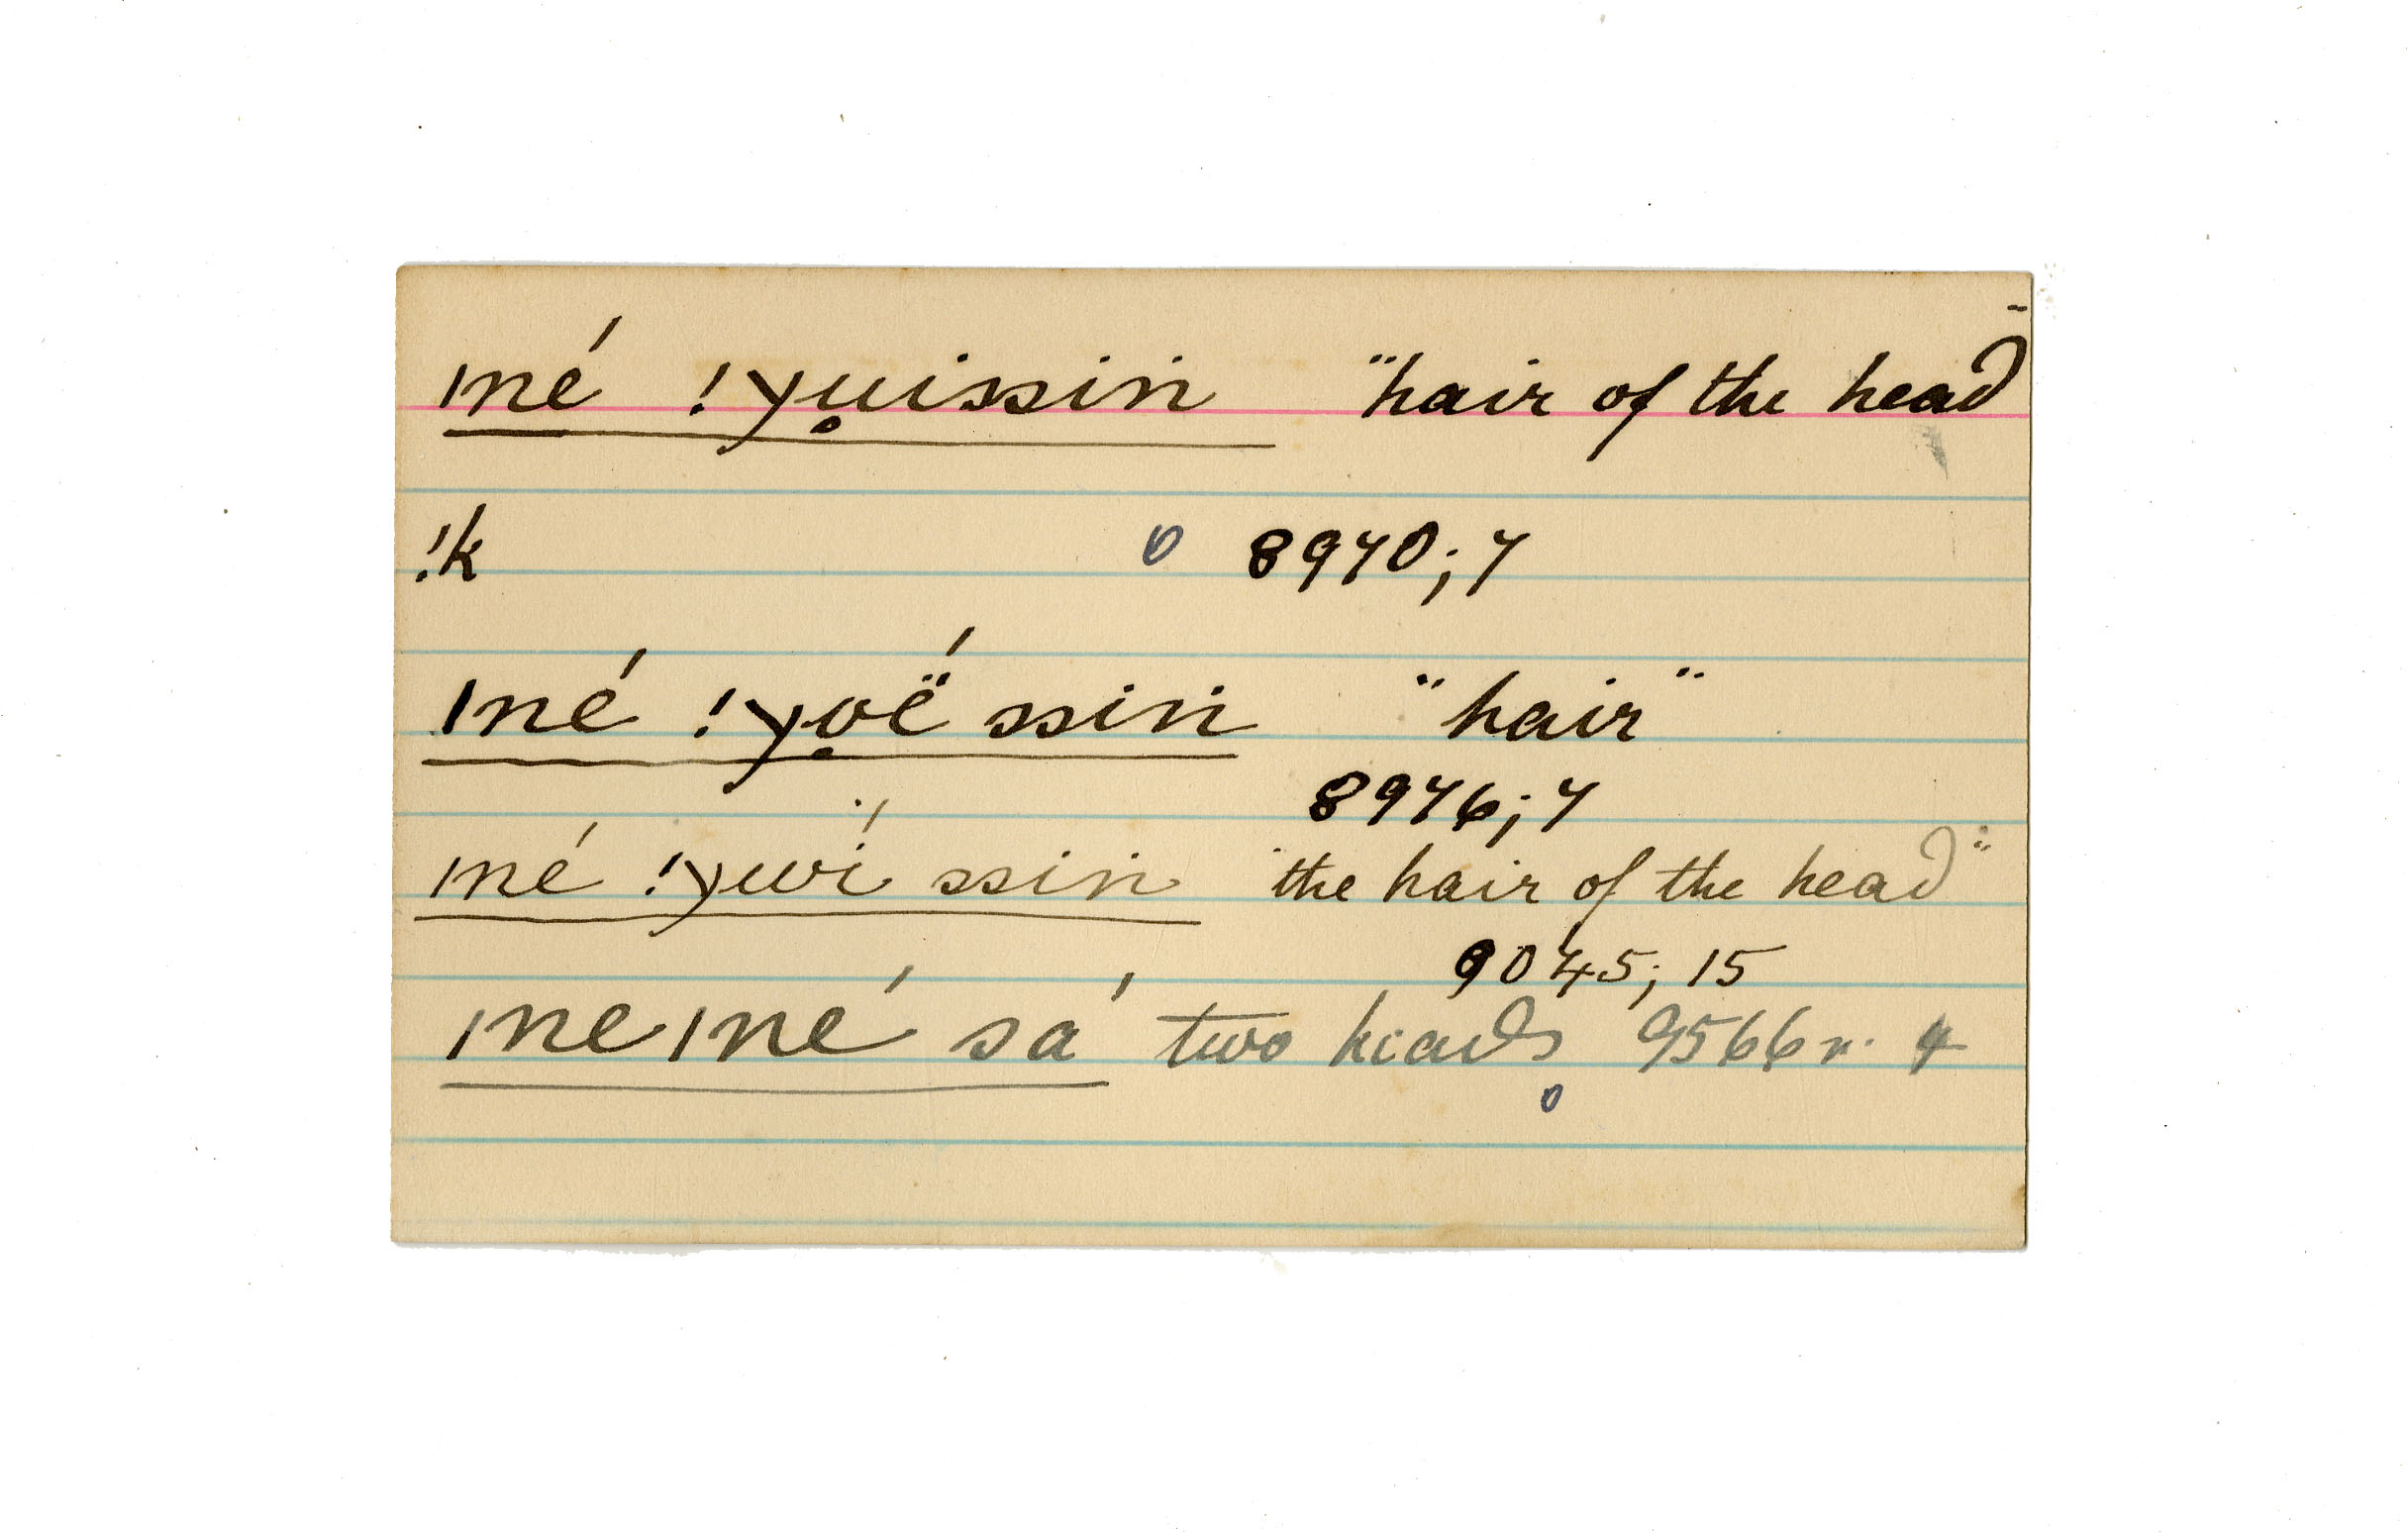 ǀné !χụissin "hair of the head"
!k 0 8970; 7
ǀné !χọë́ ssin "hair"
8976; 7
ǀné !χwí ssin "the hair of the head"
9045; 15
ǀneǀné sá two heads 9566 r. 4
0